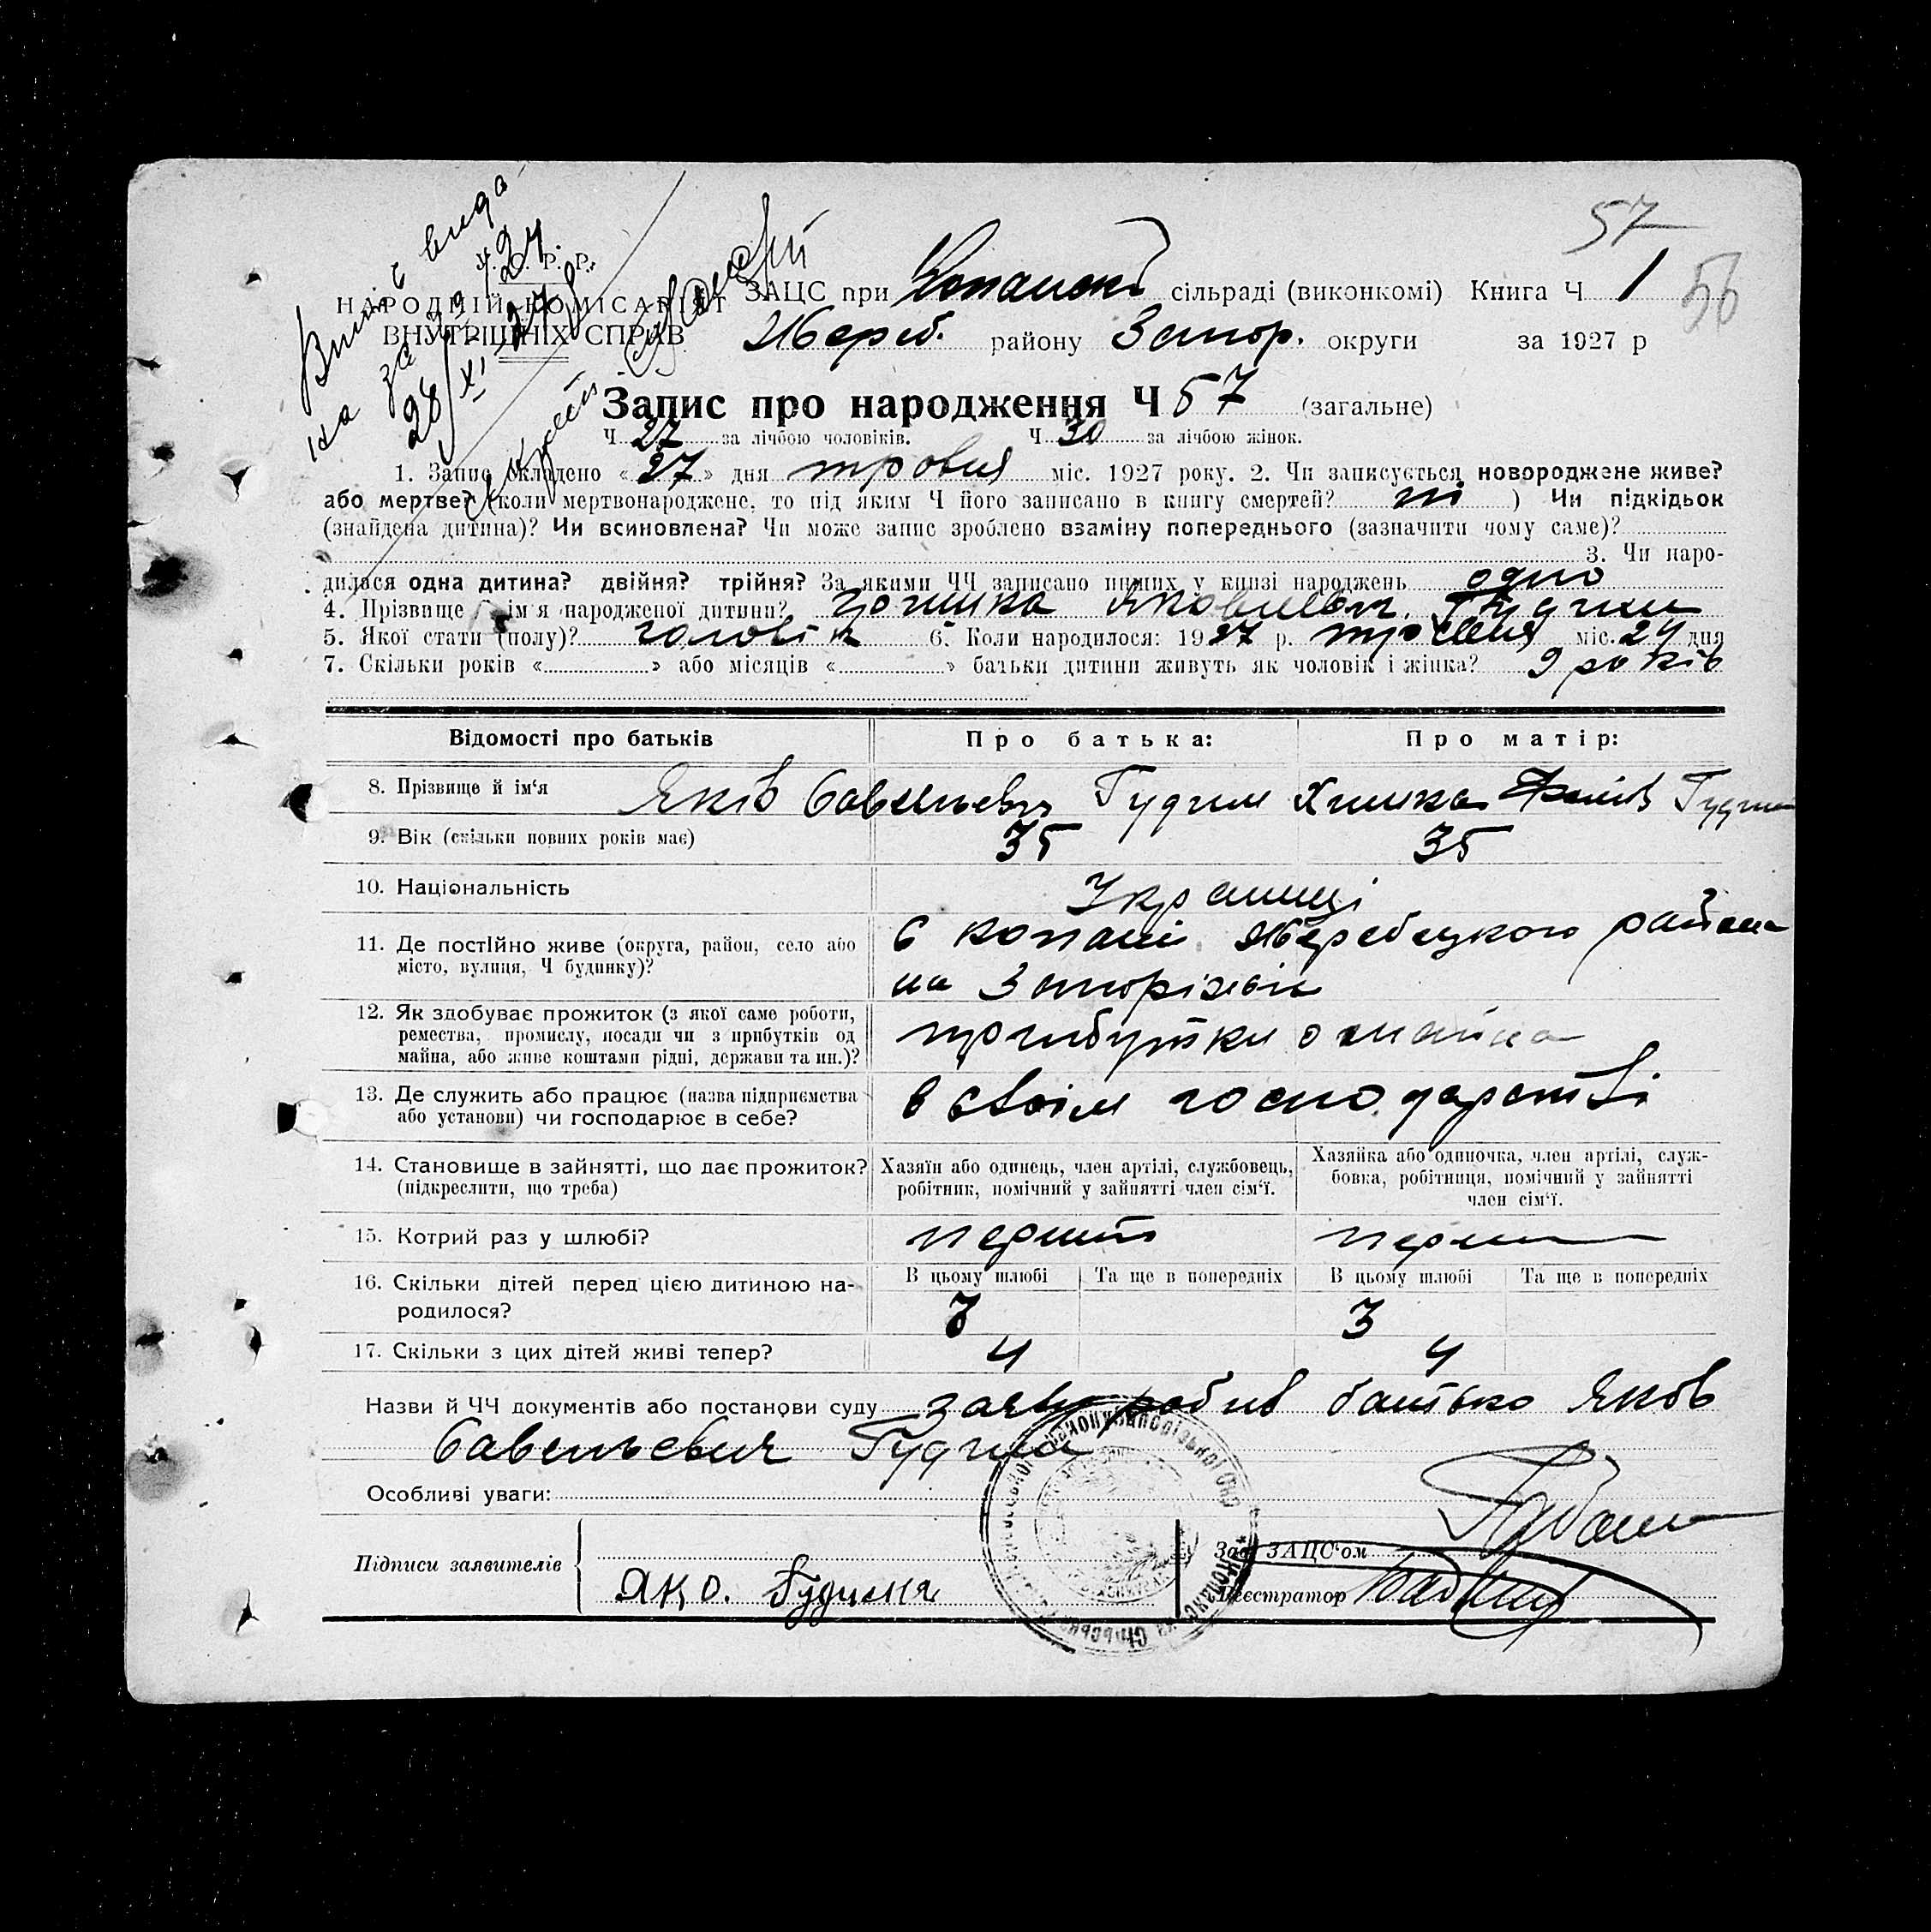 57
56
У. С. Р. Р.
НАРОДНІЙ КОМІСАРІЯТ
ВНУТРІШНІХ СПРАВ
ЗАЦС при Копанській сільраді (виконкомі) Книга Ч 1
Жереб. району Запор. округи за 1927 р
Запис про народження Ч 57 (загальне)
Ч 27 за лічбою чоловіків. Ч 30 за лічбою жінок.
1. Запис складено «27» дня травня міс. 1927 року. 2. Чи записується новороджене живе?
або мертве? (коли мертвонароджене, то під яким Ч його записано в книгу смертей? ні ) Чи підкідьок
(знайдена дитина)? Чи всиновлена? Чи може запис зроблено взаміну попереднього (зазначити чому саме)?
3. Чи наро-
дилася одна дитина? двійня? трійня? За якими ЧЧ записано инших у книзі народжень одно
4. Прізвище й ім'я народженої дитини? Яковлевич Гудим
5. Якої стати (полу)? чоловік 6. Коли народилося: 1927 р. травня міс. 24 дня
7. Скільки років «» або місяців «» батьки дитини живуть як чоловік і жінка? 9 років
Відомості про батьків Про батька: Про матір:
8. Прізвище й ім'я Яків Савельевич Гудим Химка Гудим
9. Вік (скільки повних років має) 35 35
10. Національність Українці
11. Де постійно живе (округа, район, село або
місто, вулиця, Ч будинку)?
с Копані Жеребецкого района
на Запоріжжі
12. Як здобуває прожиток (з якої саме роботи,
ремества, промислу, посади чи з прибутків од
майна, або живе коштами рідні, держави та ин.)?
прибутки з майна
13. Де служить або працює (назва підприємства
або установи) чи господарює в себе?
в своім господарстві
14. Становище в зайнятті, що дає прожиток?
(підкреслити, що треба)
Хазяїн або одинець, член артілі, службовець,
робітник, помічний у зайнятті член сім'ї.
Хазяйка або одиночка, член артілі, служ-
бовка, робітниця, помічний у зайнятті
член сім'ї.
15. Котрий раз у шлюбі? перший перш
16. Скільки дітей перед цією дитиною на-
родилося?
В цьому шлюбі Та ще в попередніх В цьому шлюбі Та ще в попередніх
3 3
17. Скільки з цих дітей живі тепер? 4 4
Назви й ЧЧ документів або постанови суду заяву робив батько Яков
Савельевич Гудим
Особливі уваги:
Підписи заявителів
Яко. Гудимя
Зав. ЗАЦС'ом
Реєстратор